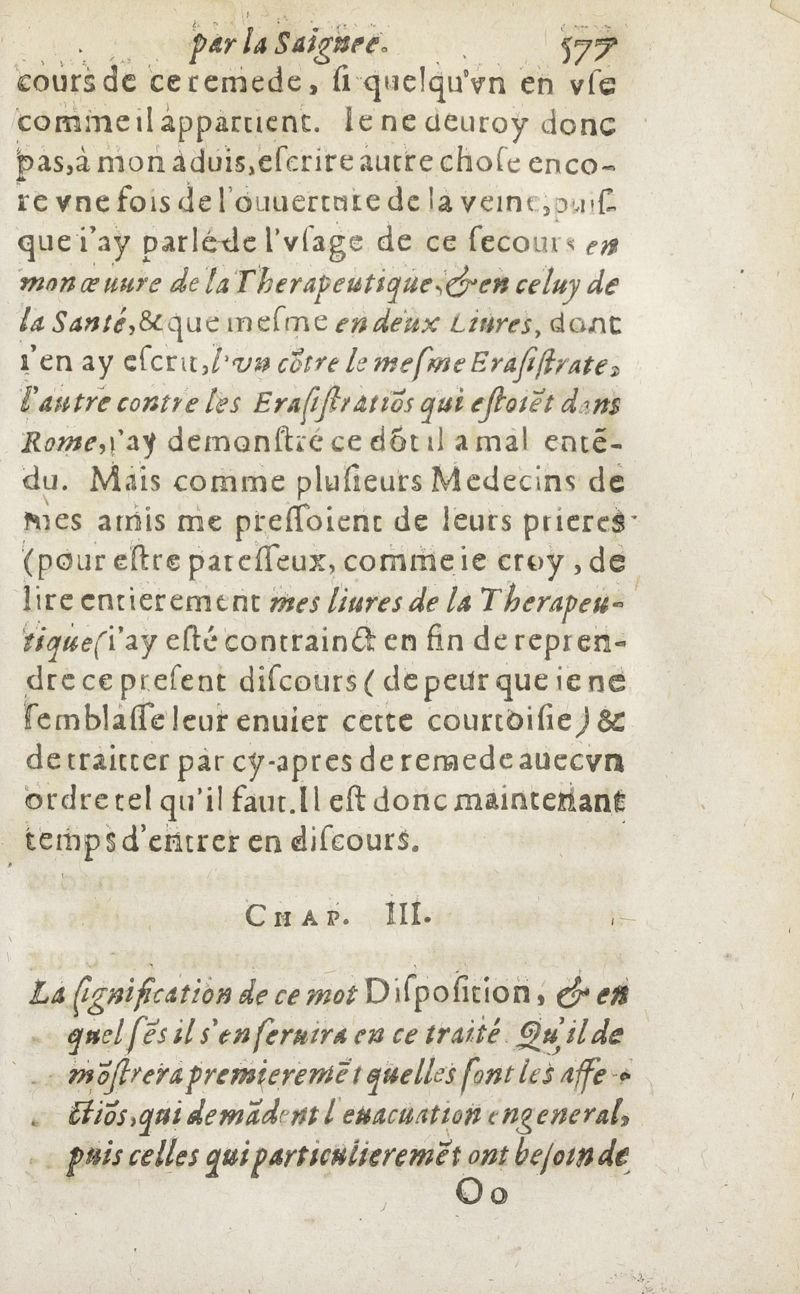 par la Saignee. 577
cours de ce remede, ſi quelqu'vn en vſe
comme il appartient. Ie ne deuroy donc
pas, à mon aduis, eſcrire autre choſe enco-
re vne fois de l'ouuerture de la veine, puiſ-
que i'ay parlé de l'vſage de ce ſecours en
mon œuure de la Therapeutique, & en celuy de
la Santé, & que meſme en deux Liures, dont
i'en ay eſcrit, l'vn cõtre le meſme Eraſiſtrate,
l'autre contre les Eraſiſtratiõs qui eſtoiẽt dans
Rome, i'ay demonſtré ce dõt il a mal entẽ-
du. Mais comme pluſieurs Medecins de
mes amis me preſſoient de leurs prieres
(pour eſtre pareſſeux, comme ie croy, de
lire entierement mes liures de la Therapeu-
tique(i'ay eſté contrainct en fin de repren-
dre ce preſent diſcours (de peur que ie ne
ſemblaſſe leur enuier cette courtoiſie) &
de traitter par cy-apres de remede auec vn
ordre tel qu'il faut. Il eſt donc maintenant
temps d'entrer en diſcours.
CHAP. III.
La ſignification de ce mot Diſpoſition, & en
quel ſẽs il s'en ſeruira en ce traité. Qu'il de
mõſtrera premieremẽt quelles ſont les affe-
ctiõs, qui demãdent l'euacuation en general,
puis celles qui particulieremẽt ont beſoin de
Oo